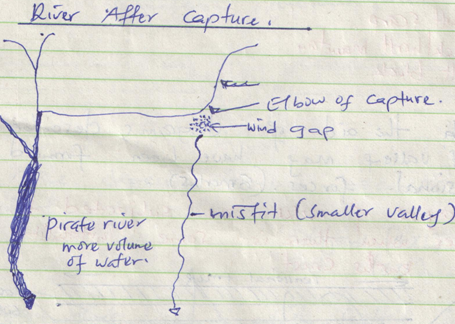 River After Capture.
Elbow of capture.
Wind gap
misfit (smaller valley)
pirate river
more volume
of water.